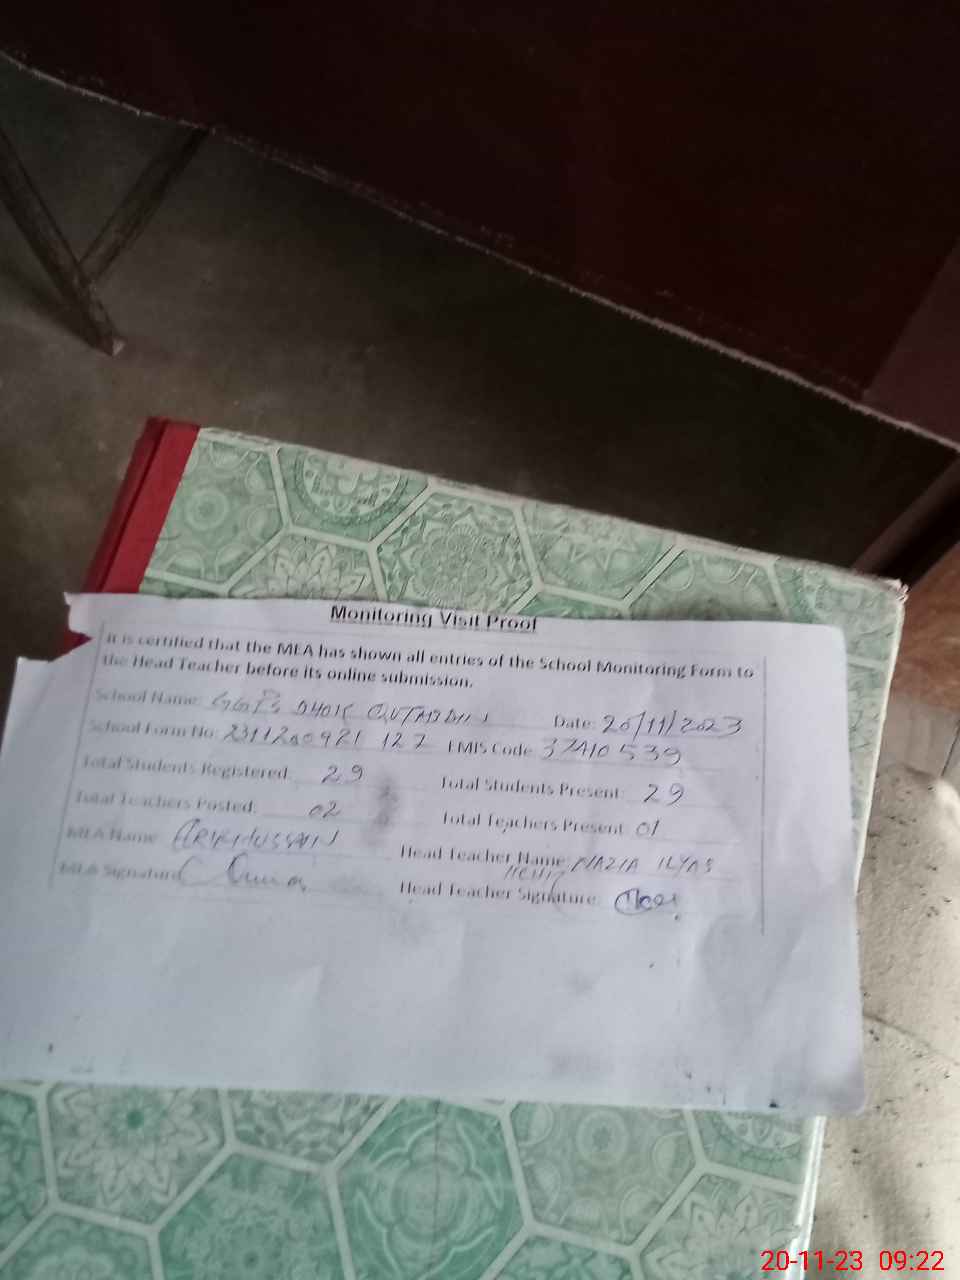 Monitoring Visit Proof
It is certified that the MEA has shown all entries of the School Monitoring Form to
the Head Teacher before its online submission.
School Name: DHOK Date: 20/11/2023
School Form No: EMIS Code: 37410539
Total Students Registered: 29 Total Students Present: 29
Total Teachers Posted: 02 Total Teachers Present: 01
MEA Name: Head Teacher Name: NAZIA ILYAS
MEA Signature: Head Teacher Signature:
20-11-23 09:22